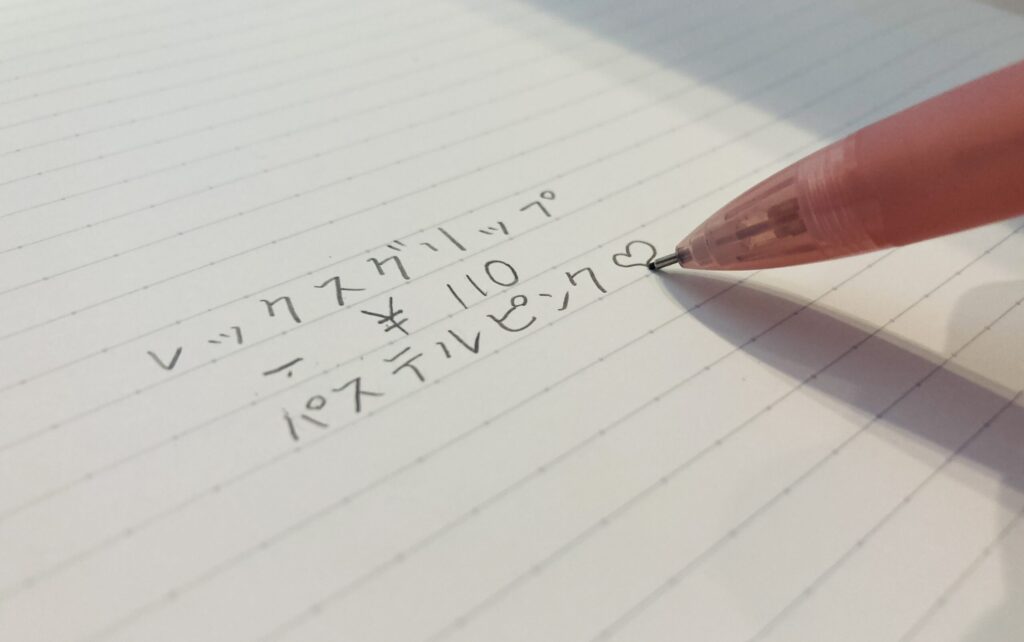 レックスグリップ
¥110
パステルピンク♡